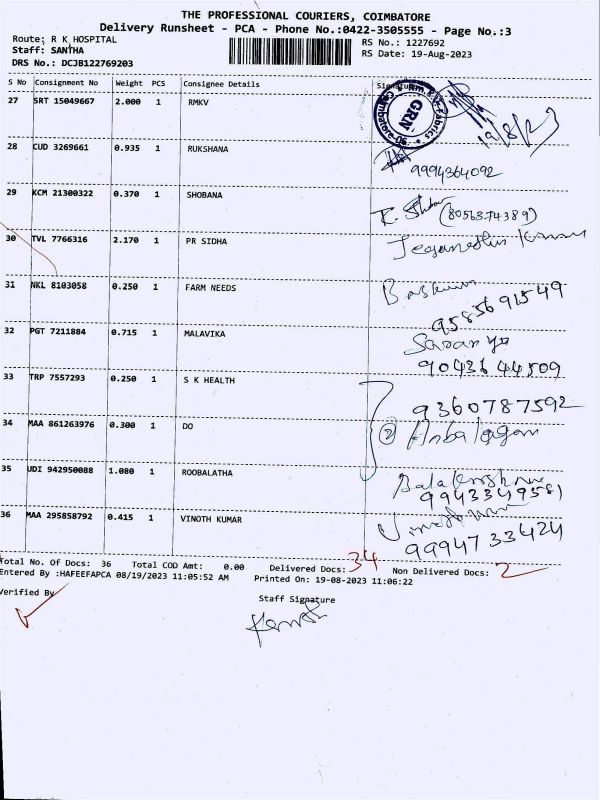 THE PROFESSIONAL COURIERS, COIMBATORE
Delivery Runsheet - PCA - Phone No.:0422-3505555 - Page No.:3
Route; R K HOSPITAL
RS No.: 1227692
Staff: SANTHA
RS Date: 19-Aug-2023
DRS No.: DCJB122769203
S No Consignment No Weight PCS Consignee Details Signature
27 SRT 15049667 2.000 1 RMKV
GRN
19/8/23
28 CUD 3269661 0.935 1 RUKSHANA
9994364092
29 KCM 21300322 0.370 1 SHOBANA
(8056874389)
30 TVL 7766316 2.170 1 PR SIDHA
31 NKL 8103058 0.250 1 FARM NEEDS
9585691549
32 PGT 7211884 0.715 1 MALAVIKA
Saranya
9043644509
33 TRP 7557293 0.250 1 S K HEALTH
9360787592
34 MAA 861263976 0.300 1 DO
② Anbalagan
35 UDI 942950088 1.080 1 ROOBALATHA
Balakrishnan
9943349581
36 MAA 295858792 0.415 1 VINOTH KUMAR
9994733424
Total No. Of Docs: 36 Total COD Amt: 0.00 Delivered Docs: 34 Non Delivered Docs: 2
Entered By :HAFEEFAPCA 08/19/2023 11:05:52 AM Printed On: 19-08-2023 11:06:22
Verified By
Staff Signature